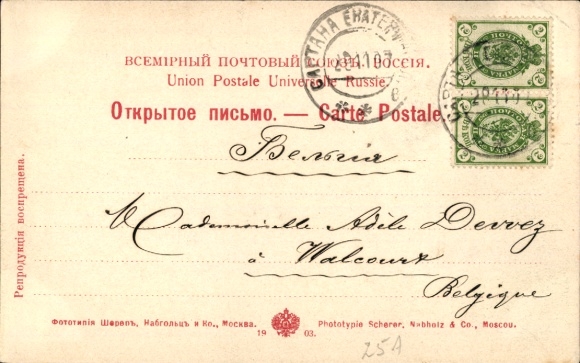 ВСЕМІРНЫЙ ПОЧТОВЫЙ СОЮЗЪ. РОССІЯ.
Union Postale Universelle Russie.
Открытое письмо. — Carte Postale.
Бельгія
Mademoiselle Adèle Devvez
à Walcourt
Belgique
Репродукція воспрещена.
Фототипія Шереръ, Набгольцъ и Ко., Москва.
19 03.
Phototypie Scherer, Nabholz & Co., Moscou.
25A
САРТАНА ЕКАТЕР
2
2
2
2